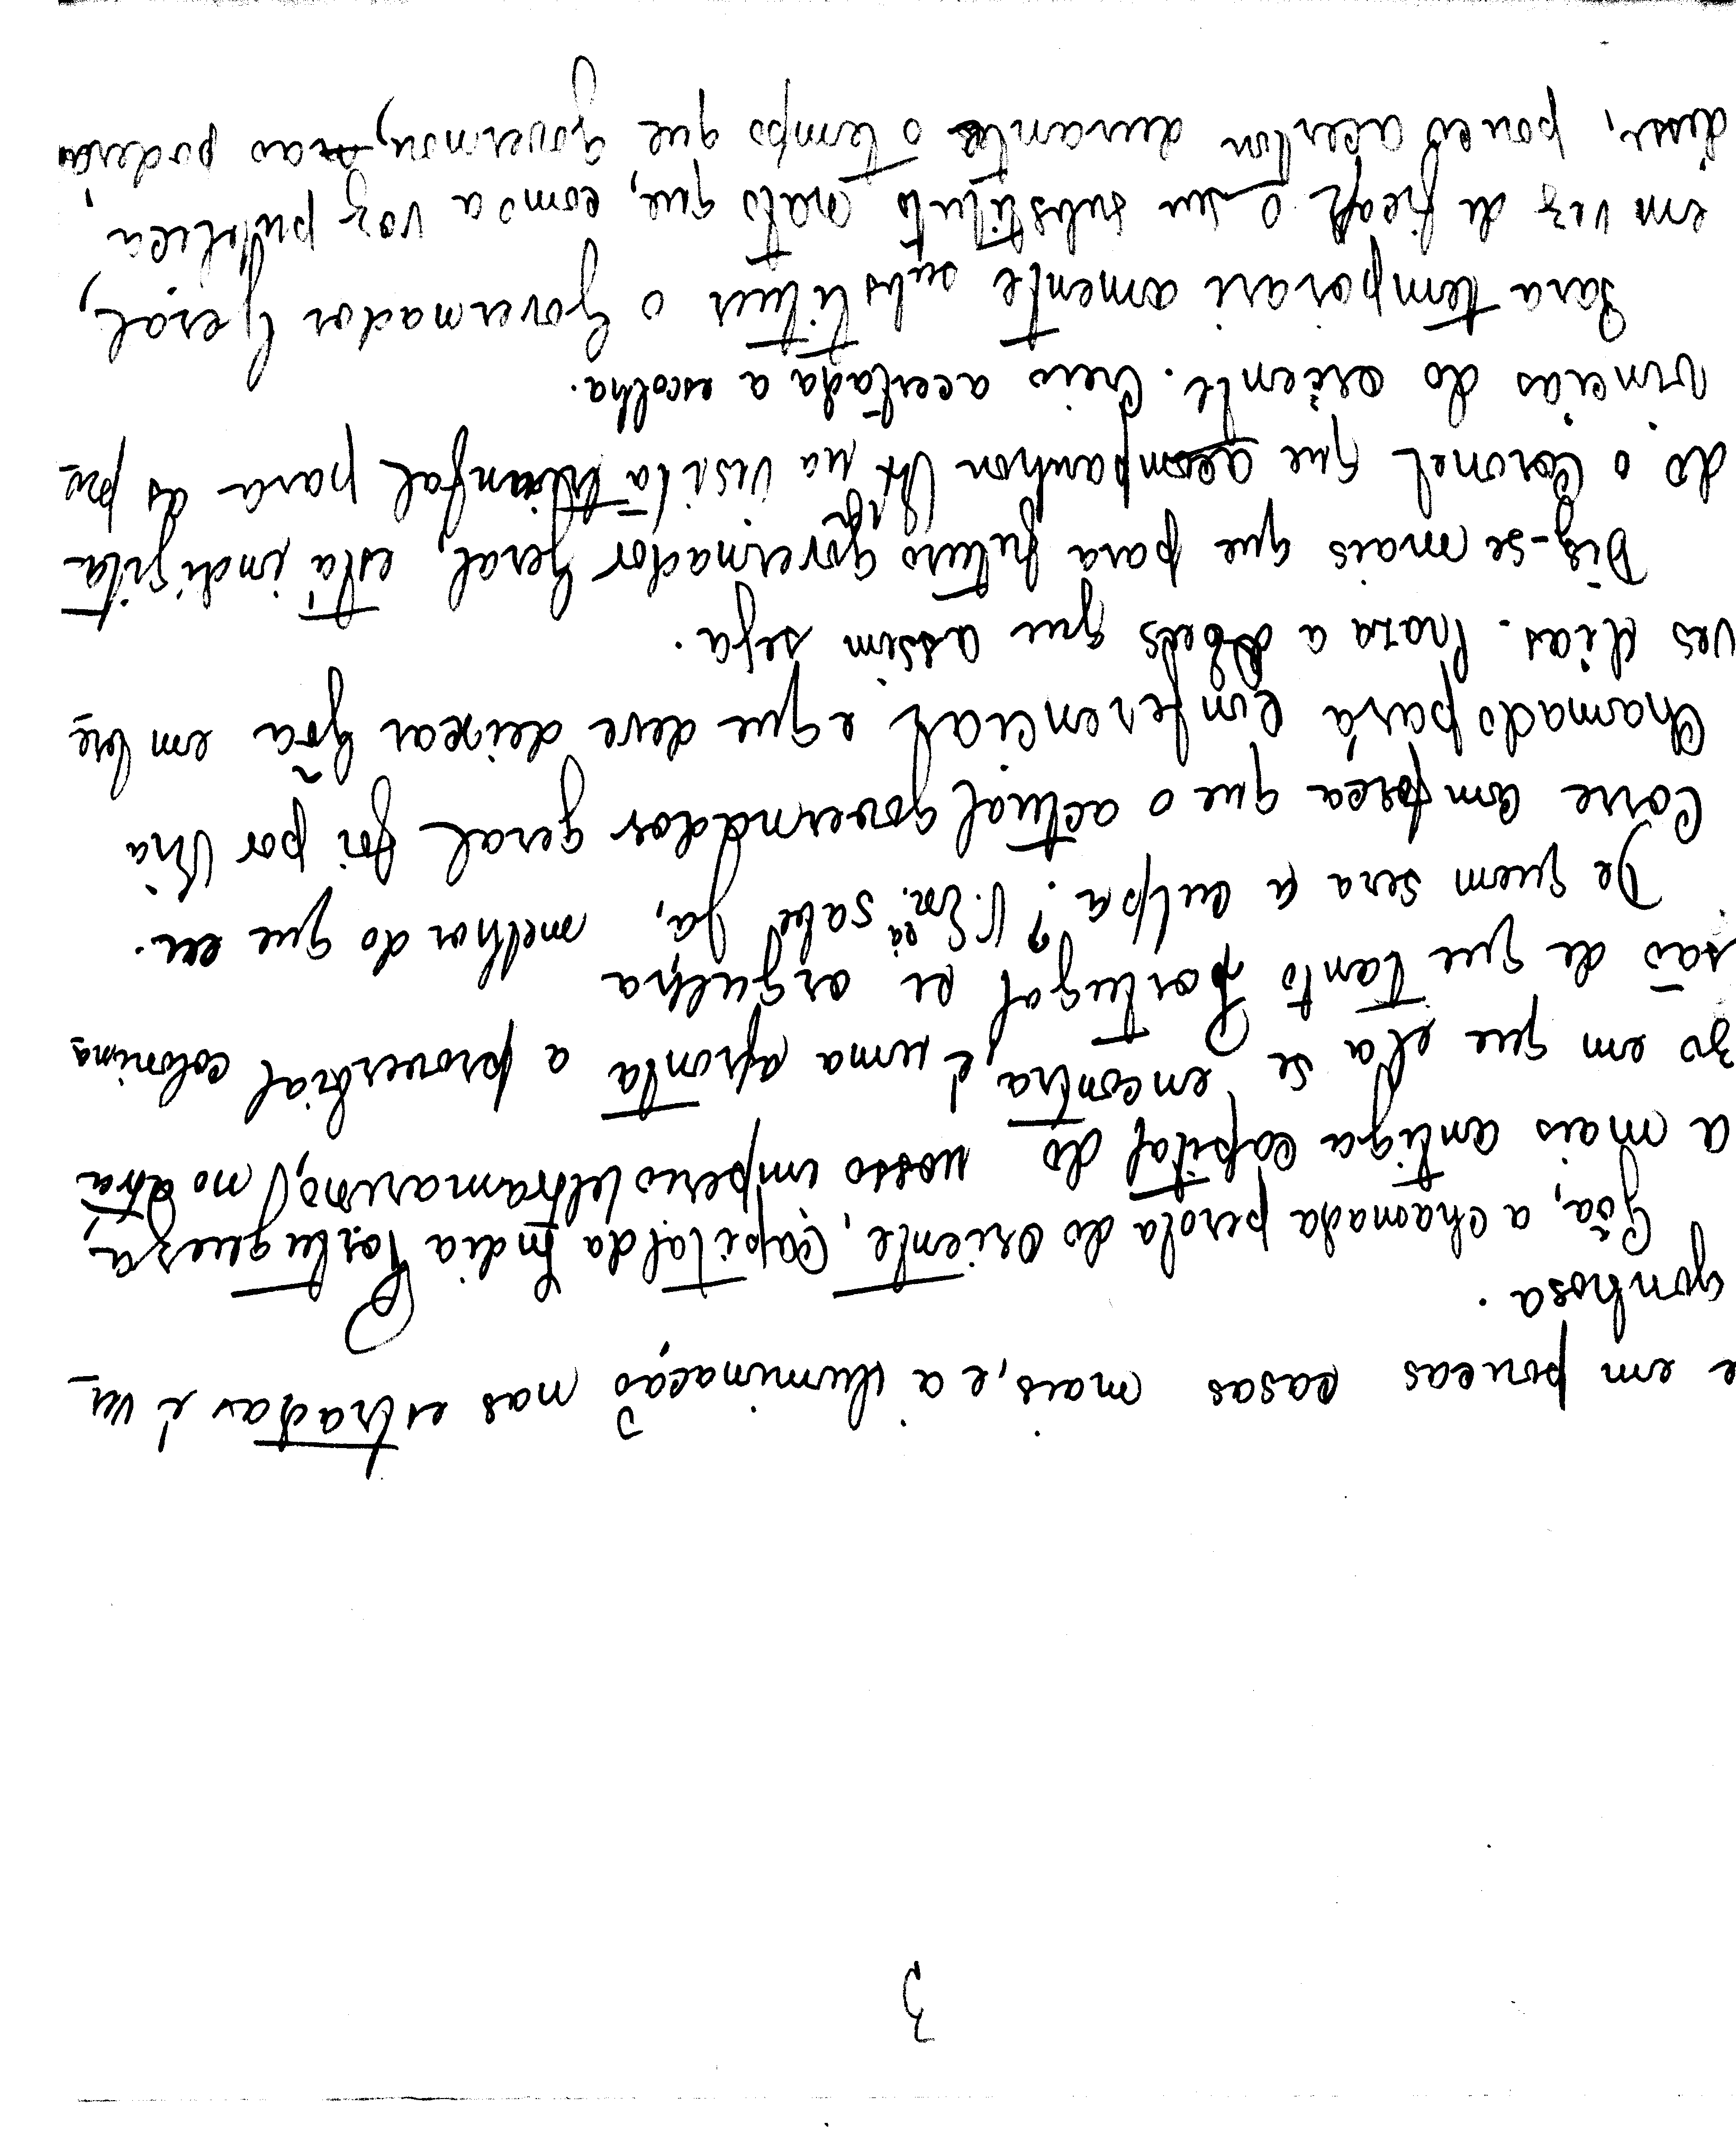 3
e em poucas casas mais, e a illuminação nas estradas é ver-
gonhosa.
Gôa, a chamada perola do Oriente, Capital da India Portugueza,
a mais antiga capital do nosso imperio ultramarino, no atra-
zo em que ela se encontra, é uma afronta a proverbial coloniza-
são de que tanto Portugal se orgulha
De quem sera a culpa? V. Exª sabe já, melhor do que eu.
Corre com força que o actual governador geral foi por
chamado para conferenciar e que deve deixar Gôa em bre-
ves dias. Praza a Deus que assim seja.
Diz-se mais que para futuro governador geral, está indigita-
do o Coronel que acompanhou na visita triunfal para as pro-
vincias do oriente. Creio acertada a escolha.
Para temporariamente substituir o Governador Geral,
em vez de ficar o seu substituto nato que, como a voz publica
disse, pouco acertou durante o tempo que governou, não poderá